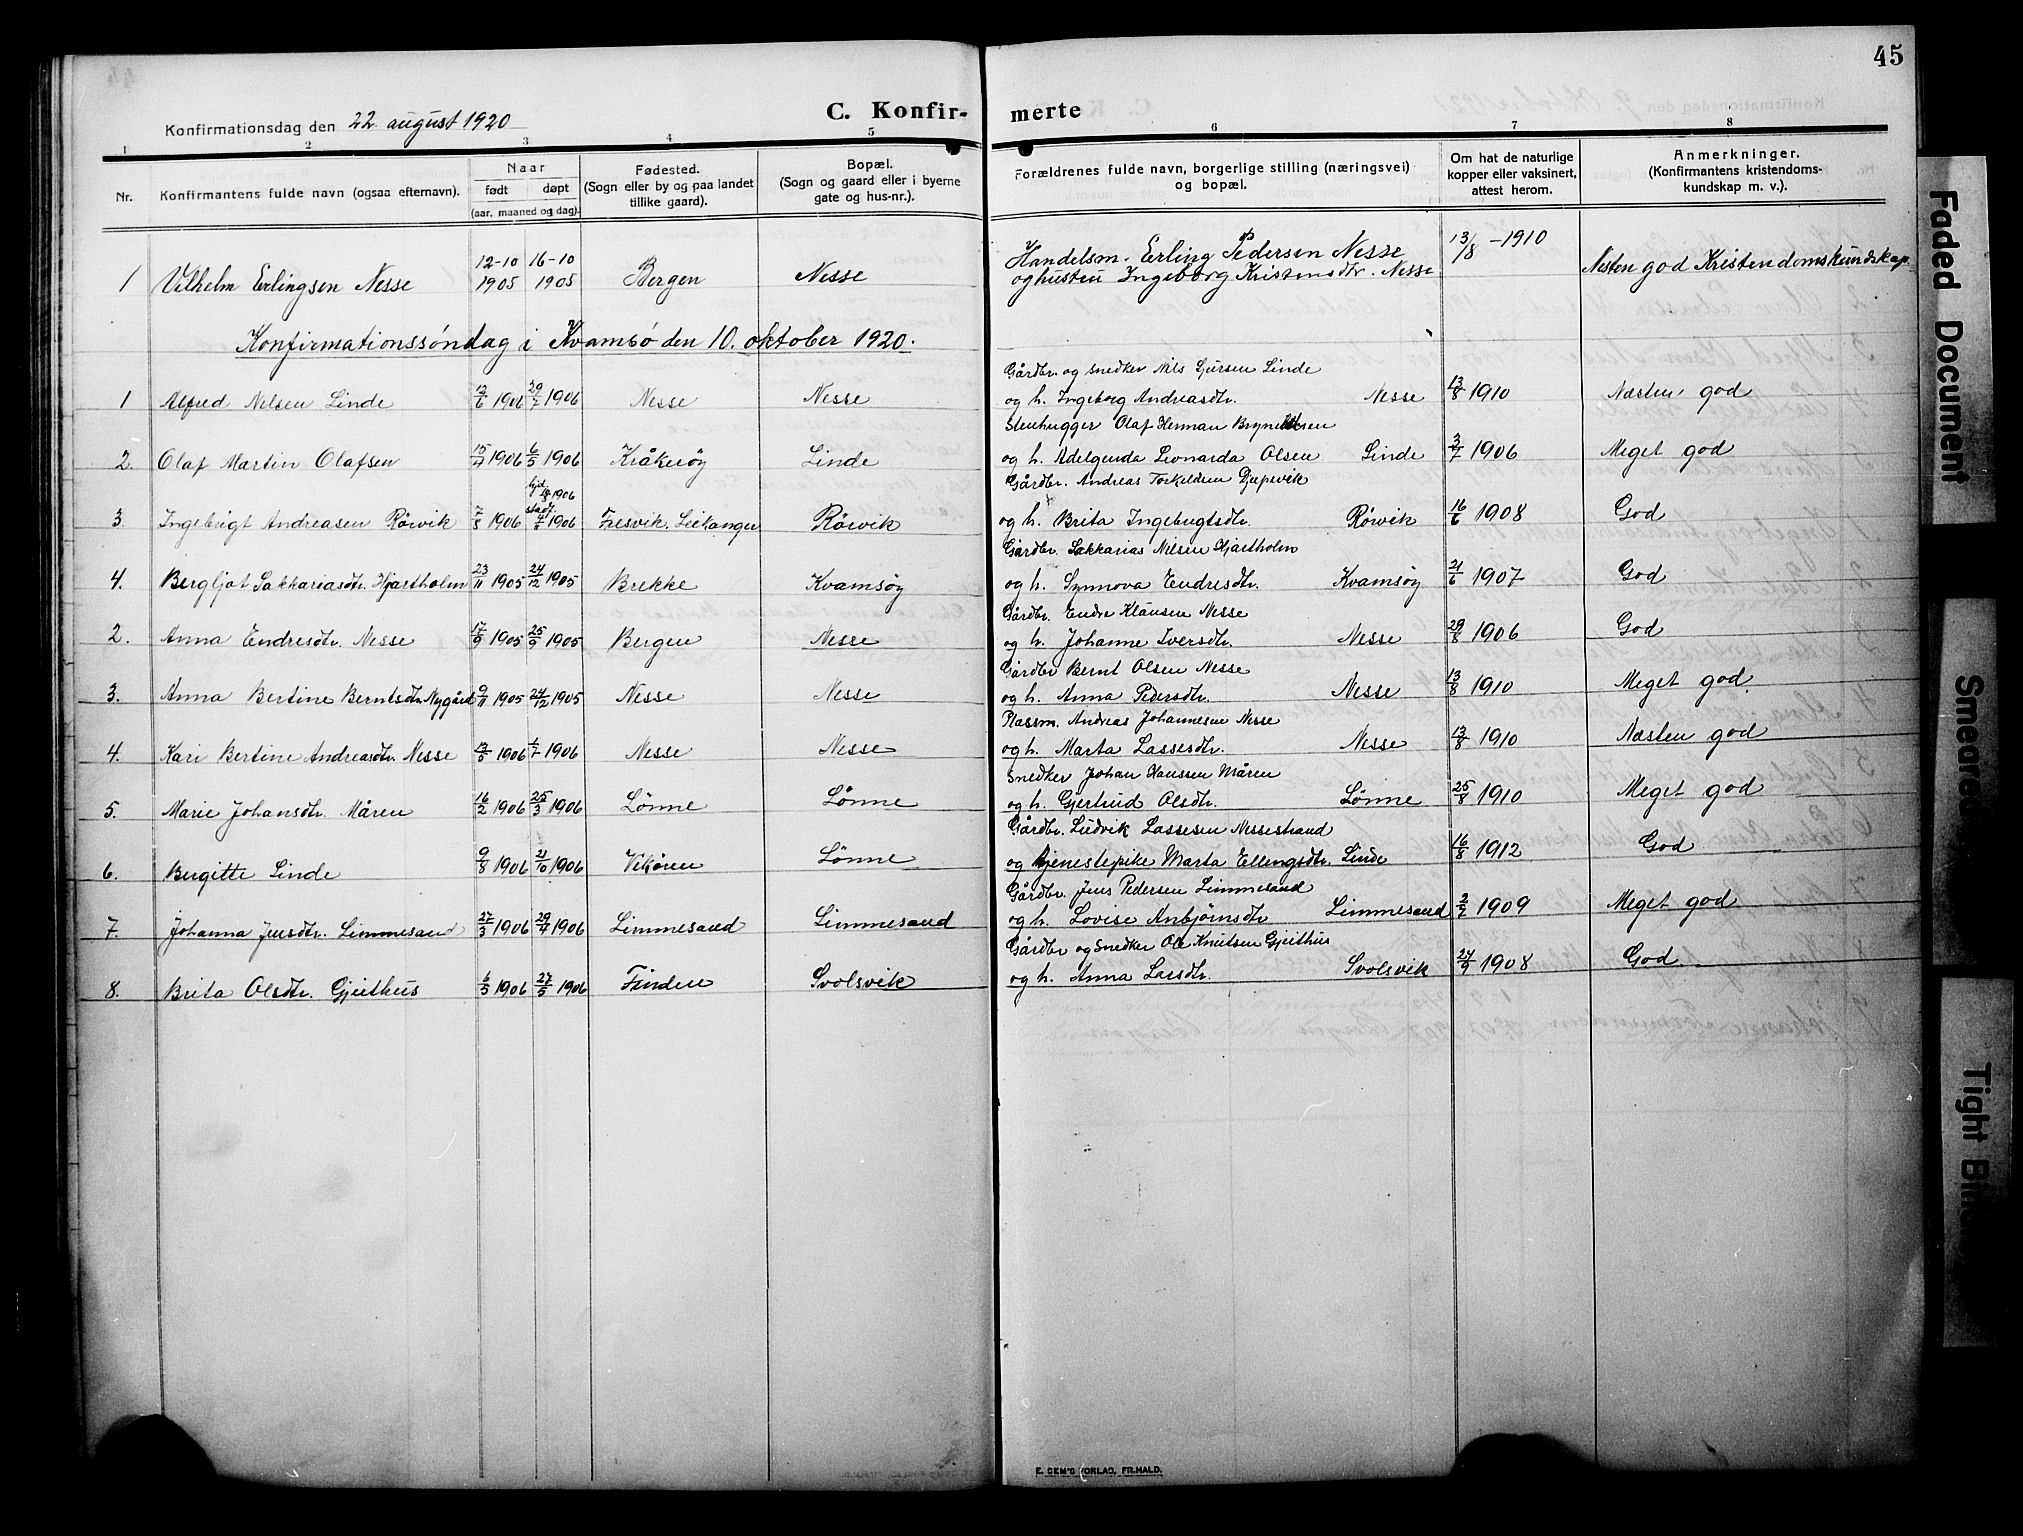 45
Konfirmationsdag den 22 august 1920
C. Konfir-
merte
1 2 3 4 5 6 7 8
Nr.
Konfirmantens fulde navn (ogsaa efternavn).
Naar
født
døpt
(aar, maaned og dag).
Fødested.
(Sogn eller by og paa landet
tillike gaard).
Bopæl.
(Sogn og gaard eller i byerne
gate og hus-nr.).
Forældrenes fulde navn, borgerlige stilling (næringsvei)
og bopæl.
Om hat de naturlige
kopper eller vaksinert,
attest herom.
Anmerkninger.
(Konfirmantens kristendoms-
kundskap m. v.).
Handelsm. Erling Pedersen Nesse
1 Vilhelm Erlingsen Nesse 12-10 1905 16-10 1905 Bergen Nesse og hustru Ingeborg Kristensdtr. Nesse 13/8 - 1910 Nesten god Kristendomskundskap
Konfirmationssøndag i Kvamsø den 10. oktober 1920.
Gårdbr. og snedker Nils Sjursen Linde
1 Alfred Nilsen Linde 12/6 1906 29/7 1906 Nesse Nesse og h. Ingeborg Andreasdtr. Nesse 13/8 1910 Næsten god
Stenhugger Olaf Herman Bryneldsen
2. Olaf Martin Olafsen 15/4 1906 6/5 1906 Kråkerøy Linde og h. Adelgunda Leonarda Olsen Linde 3/7 1906 Meget god
Gårdbr. Andreas Torkeldsen Djupevik
3. Ingebrigt Andreasen Rörvik 1906 hjd. 1906 stadf. 1906 Fresvik. Leikanger Rörvik og h. Brita Ingebrigtsdtr. Rörvik 16/6 1908 God
Gårdbr. Sakkarias Nilsen Hjartholm
4. Bergljot Sakkariasdtr. Hjartholm 23/11 1905 24/12 1905 Brekke Kvamsøy og h. Synnova Endresdtr. Kvamsøy 21/6 1907 God
Gårdbr. Endre Klausen Nesse
2. Anna Endresdtr. Nesse 17/9 1905 25/9 1905 Bergen Nesse og h. Johanne Iversdtr. Nesse 29/8 1906 God
Gårdbr Bernt Olsen Nesse
3. Anna Bertine Berntsdtr. Nygård 9/11 1905 24/12 1905 Nesse Nesse og h. Anna Pedersdtr. Nesse 13/8 1910 Meget god
Plassm. Andreas Johannesen Nesse
4. Kari Bertine Andreasdtr. Nesse 1906 1/7 1906 Nesse Nesse og h. Marta Lassesdtr. Nesse 13/8 1910 Næsten god
Snedker Johan Hanssen Måren
5. Marie Johansdtr. Måren 16/2 1906 25/3 1906 Lönne Lönne og h. Gjertrud Olsdtr. Lönne 25/8 1910 Meget god
Gårdbr. Ludvik Lassesen Nessestrand
6. Bergitte Linde 9/8 1906 21/10 1906 Vikören Lönne og tjenestepike Marta Ellingsdtr. Linde 16/8 1912 God
Gårdbr. Jens Pedersen Limmesand
7. Johanna Jensdtr. Limmesand 27/3 1906 29/4 1906 Limmesand Limmesand og h. Lovise Anbjørnsdtr Limmesand 2/7 1909 Meget god
Gårdbr og Snedker Ole Knutsen Gjeithus
8. Brita Olsdtr. Gjeithus 6/5 1906 27/5 1906 Finden Svolsvik og h. Anna Larsdtr. Svolsvik 24/9 1908 God
E. SEM'S FORLAG, FR.HALD.
Faded Document
Smeared
Tight